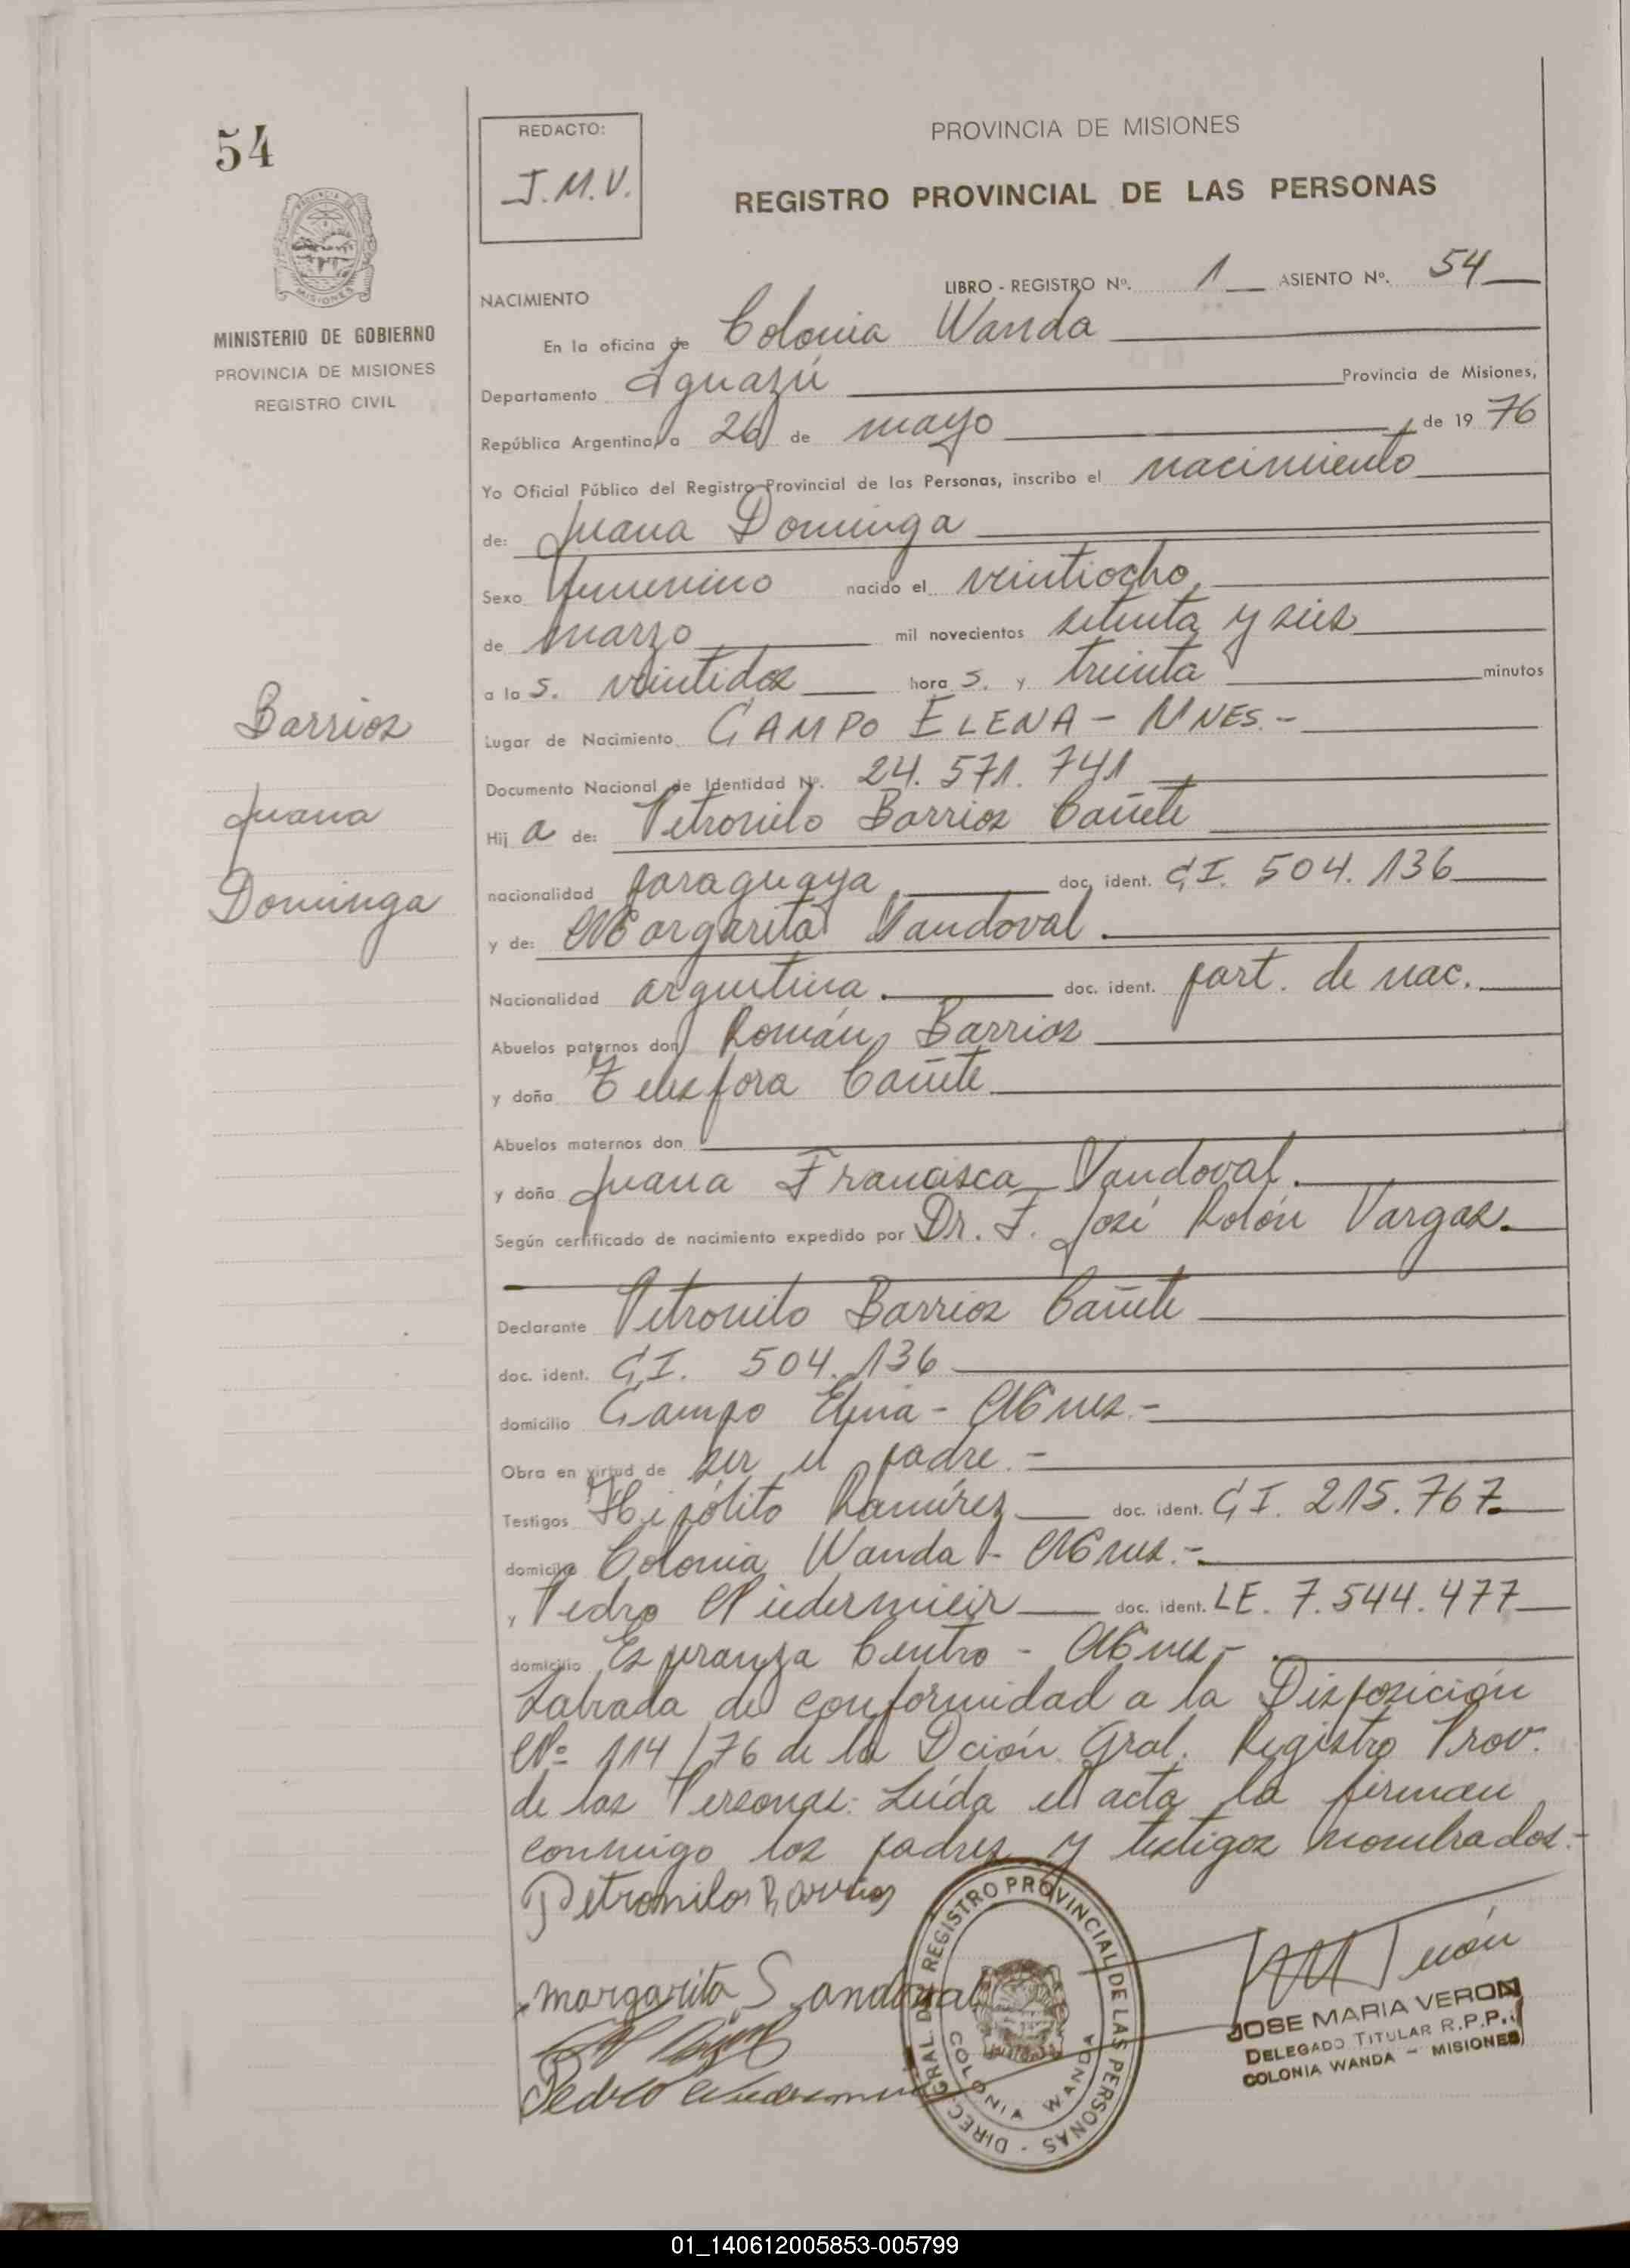 54
REDACTO:
J.M.V.
PROVINCIA DE MISIONES
REGISTRO PROVINCIAL DE LAS PERSONAS
MISIONES
MINISTERIO DE GOBIERNO
PROVINCIA DE MISIONES
REGISTRO CIVIL
LIBRO - REGISTRO Nº. 1 ASIENTO Nº. 54
NACIMIENTO
En la oficina de Colonia Wanda
Departamento Iguazú Provincia de Misiones,
República Argentina, a 26 de mayo de 19 76
Yo Oficial Público del Registro Provincial de las Personas, inscribo el nacimiento
de: Juana Dominga
Sexo femenino nacido el veintiocho,
de marzo mil novecientos setenta y seis
a la s. veintidos hora s. y treinta minutos
Lugar de Nacimiento CAMPO ELENA - MNES.-
Documento Nacional de Identidad Nº. 24.571.741
Hij a de: Petronilo Barrios Cañete
nacionalidad paraguaya doc. ident. C.I. 504.136
y de: Margarita Sandoval.
Nacionalidad argentina. doc. ident. part. de nac.
Abuelos paternos don Román Barrios
y doña Telesfora Cañete
Abuelos maternos don
y doña Juana Francisca Sandoval.
Según certificado de nacimiento expedido por Dr. F. José Rolón Vargas.
Declarante Petronilo Barrios Cañete
doc. ident. C.I. 504.136
domicilio Campo Elena - Mnes.-
Obra en virtud de ser el padre.-
Testigos Hipólito Ramírez doc. ident. C.I. 215.767.
domicilio Colonia Wanda - Mnes.-
y Pedro Niedermieir doc. ident. LE. 7.544.477
domicilio Esperanza Centro - Mnes.-
Labrada de conformidad a la Disposición
Nº 114/76 de la Dción. Gral. Registro Prov.
de las Personas. Leída el acta la firman
conmigo los padres y testigos nombrados.-
Barrios
Juana
Dominga
Petronilo Barrios
Margarita Sandoval
Pedro
DIREC. GRAL. DE REGISTRO PROVINCIAL DE LAS PERSONAS
COLONIA WANDA
JOSE MARIA VERON
DELEGADO TITULAR R.P.P.
COLONIA WANDA - MISIONES
01_140612005853-005799